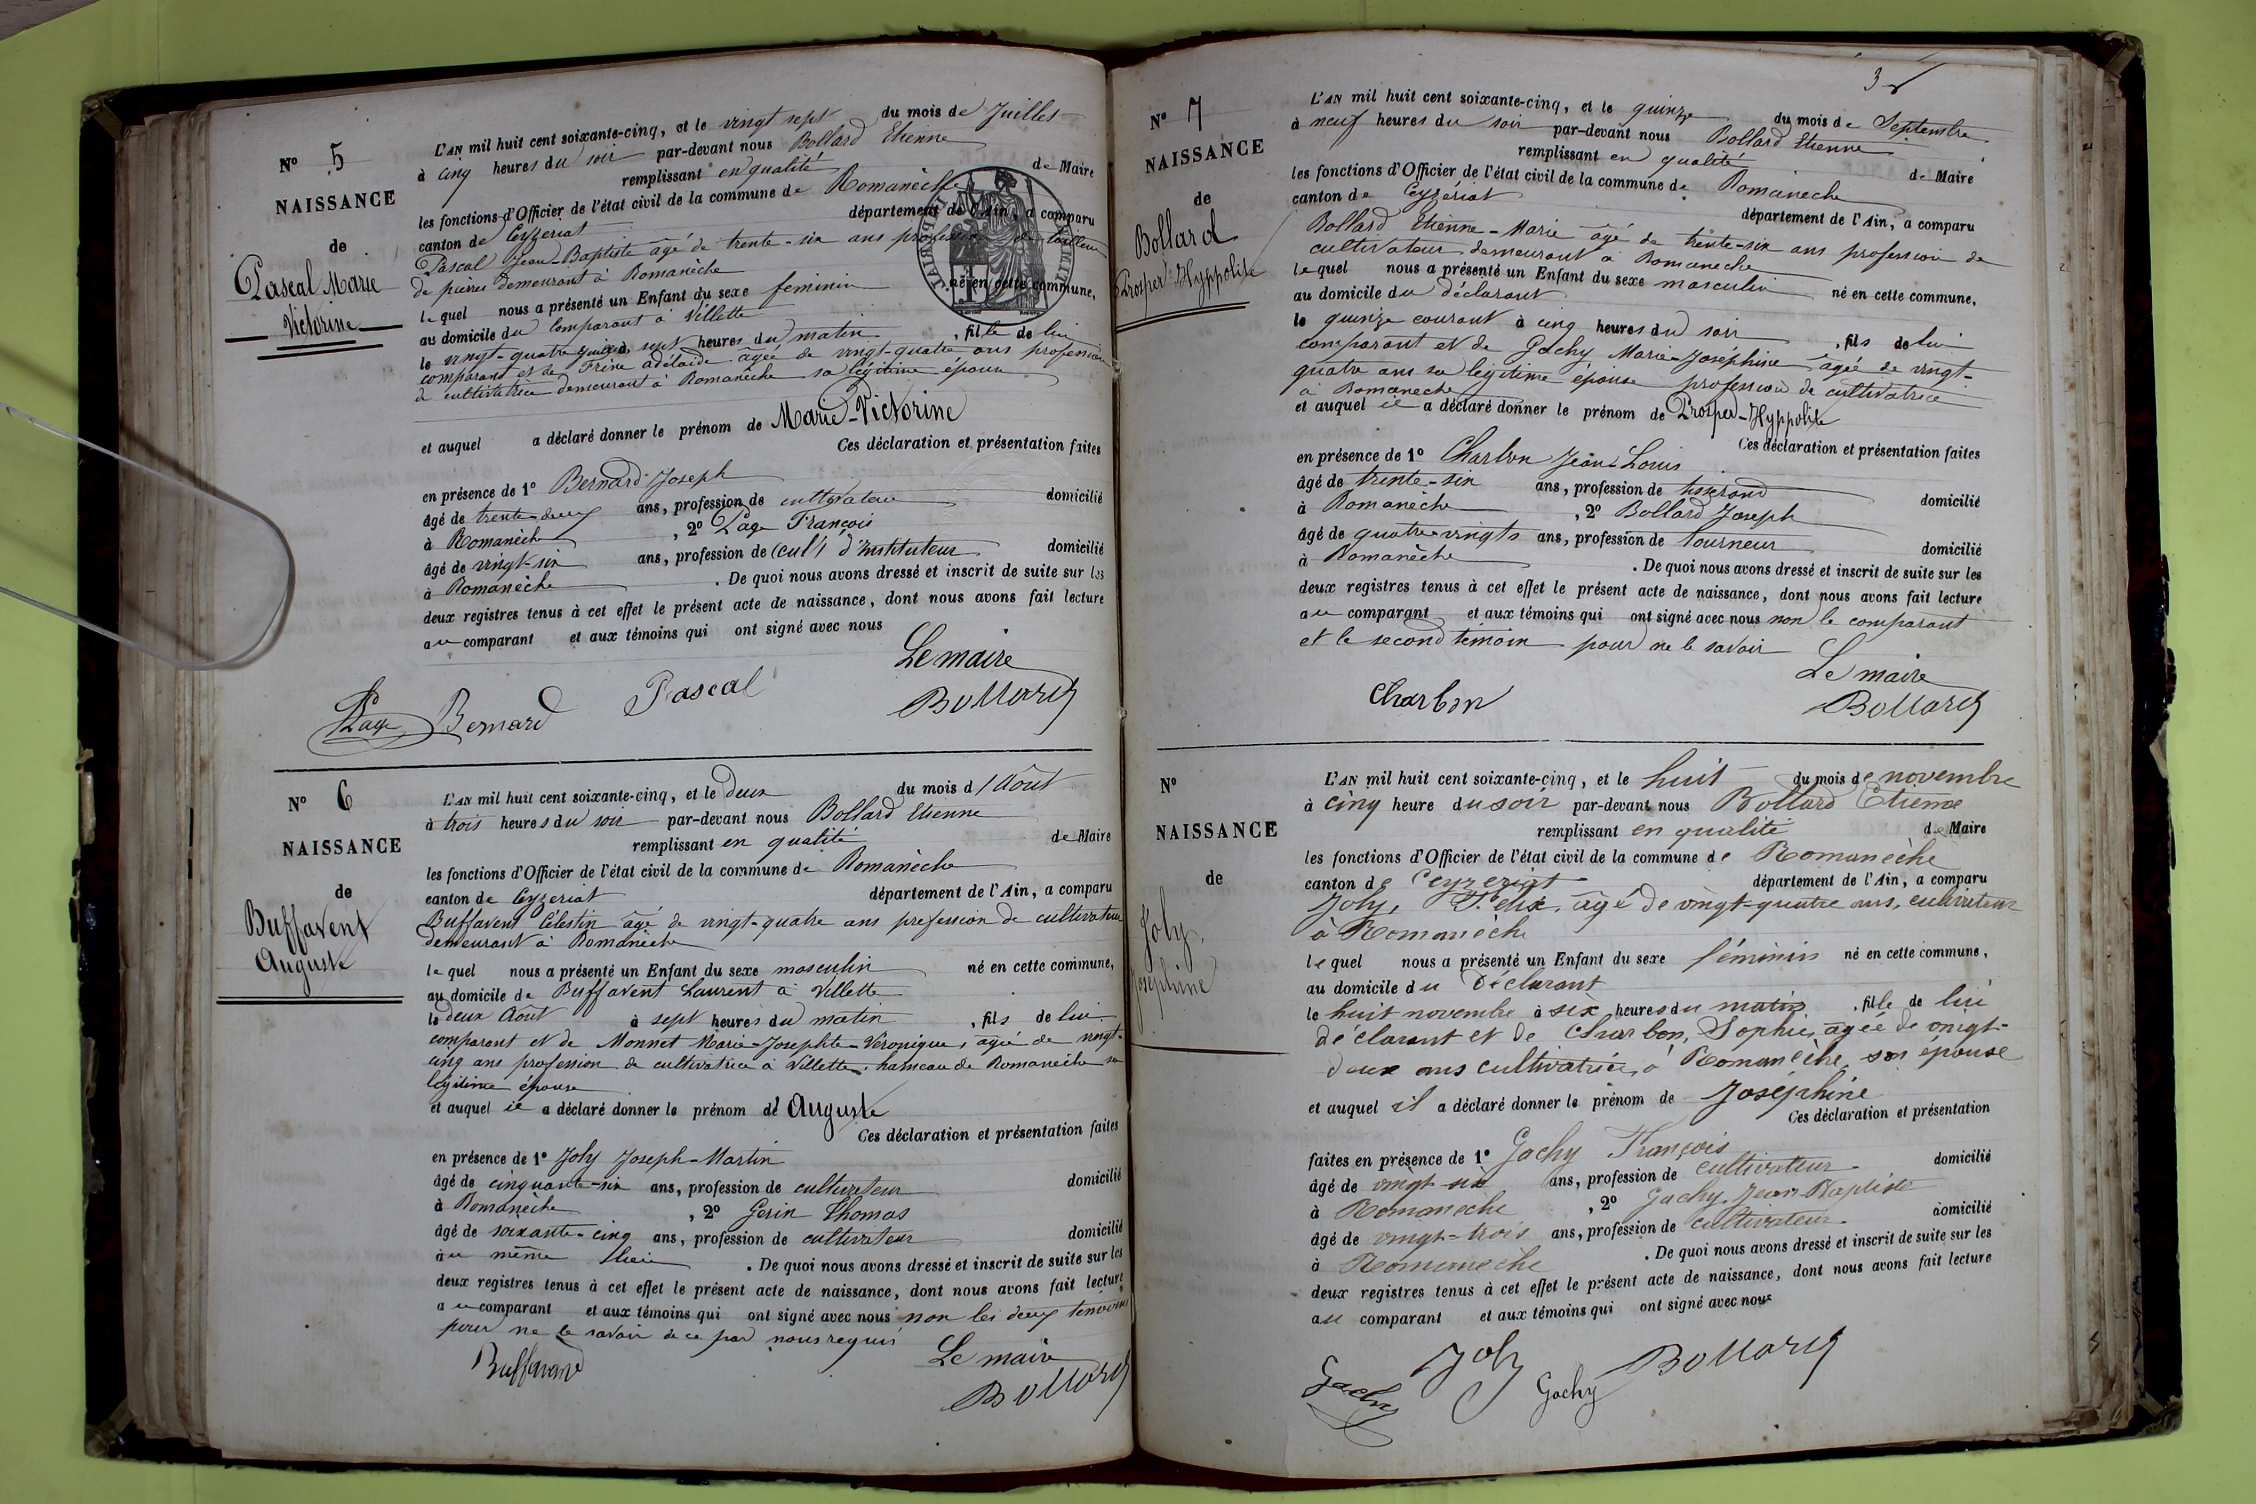 N° 5
NAISSANCE
de
Pascal Marie
Victorine
L'AN mil huit cent soixante-cinq, et le vingt sept du mois de Juillet
à cinq heures du soir par-devant nous Bollard Etienne
remplissant en qualité de Maire
les fonctions d'Officier de l'état civil de la commune de Romanèche
canton de Ceyzeriat département de l'Ain, a comparu
Pascal Jean-Baptiste âgé de trente-six ans profession de tailleur
de pierres demeurant à Romanèche
le quel nous a présenté un Enfant du sexe feminin né en cette commune,
au domicile du comparant à Villette
le vingt-quatre Juillet à sept heures du matin, fille de lui
comparant et de Frène adélaïde âgée de vingt-quatre ans profession
de cultivatrice demeurant à Romanèche sa légitime épouse
et auquel a déclaré donner le prénom de Marie-Victorine
Ces déclaration et présentation faites
en présence de 1° Bernard Joseph
âgé de trente-deux ans, profession de cultivateur domicilié
à Romanèche, 2° Page François
âgé de vingt-six ans, profession de d'Instituteur domicilié
à Romanèche. De quoi nous avons dressé et inscrit de suite sur les
deux registres tenus à cet effet le présent acte de naissance, dont nous avons fait lecture
au comparant et aux témoins qui ont signé avec nous
Le maire
Page Bernard Pascal Bollard
N° 6
NAISSANCE
de
Buffavent
Auguste
L'AN mil huit cent soixante-cinq, et le deux du mois d'Août
à trois heures du soir par-devant nous Bollard Etienne
remplissant en qualité de Maire
les fonctions d'Officier de l'état civil de la commune de Romanèche
canton de Ceyzeriat département de l'Ain, a comparu
Buffavent Célestin âgé de vingt-quatre ans profession de cultivateur
demeurant à Romanèche
le quel nous a présenté un Enfant du sexe masculin né en cette commune,
au domicile de Buffavent Laurent à Villette
le deux Août à sept heures du matin, fils de lui
comparant et de Monnet Marie-Josephte-Véronique, âgée de vingt-
cinq ans profession de cultivatrice à Villette, hameau de Romanèche sa
légitime épouse
et auquel il a déclaré donner le prénom de Auguste
Ces déclaration et présentation faites
en présence de 1° Joly Joseph-Martin
âgé de cinquante-six ans, profession de cultivateur domicilié
à Romanèche, 2° Gerin Thomas
âgé de soixante-cinq ans, profession de cultivateur domicilié
au même lieu. De quoi nous avons dressé et inscrit de suite sur les
deux registres tenus à cet effet le présent acte de naissance, dont nous avons fait lecture
au comparant et aux témoins qui ont signé avec nous non les deux temoins
pour ne le savoir de ce par nous requis
Le maire
Buffavand Bollard
3
N° 7
NAISSANCE
de
Bollard
Prosper-Hyppolite
L'AN mil huit cent soixante-cinq, et le quinze du mois de Septembre
à neuf heures du soir par-devant nous Bollard Etienne
remplissant en qualité de Maire
les fonctions d'Officier de l'état civil de la commune de Romanèche
canton de Ceyzériat département de l'Ain, a comparu
Bollard Etienne-Marie âgé de trente-six ans profession de
cultivateur demeurant à Romaneche
le quel nous a présenté un Enfant du sexe masculin né en cette commune,
au domicile du déclarant
le quinze courant à cinq heures du soir, fils de lui
comparant et de Gachy Marie-Joséphine âgée de vingt-
quatre ans sa légitime épouse profession de cultivatrice
à Romaneche
et auquel il a déclaré donner le prénom de Prosper-Hyppolite
Ces déclaration et présentation faites
en présence de 1° Charbon Jean-Louis
âgé de trente-six ans, profession de tisserand domicilié
à Romanèche, 2° Bollard Joseph
âgé de quatre-vingts ans, profession de tourneur domicilié
à Romanèche. De quoi nous avons dressé et inscrit de suite sur les
deux registres tenus à cet effet le présent acte de naissance, dont nous avons fait lecture
au comparant et aux témoins qui ont signé avec nous non le comparant
et le second témoin pour ne le savoir
Le maire
Charbon Bollard
N°
NAISSANCE
de
Joly,
Joséphine
L'AN mil huit cent soixante-cinq, et le huit du mois de novembre
à cinq heure du soir par-devant nous Bollard Etienne
remplissant en qualité de Maire
les fonctions d'Officier de l'état civil de la commune de Romanèche
canton de Ceyzeriat département de l'Ain, a comparu
Joly, Félix, âgé de vingt-quatre ans, cultivateur
à Romanèche
le quel nous a présenté un Enfant du sexe féminin né en cette commune,
au domicile du Déclarant
le huit novembre à six heures du matin, fille de lui
déclarant et de Charbon, Sophie, âgée de vingt-
deux ans cultivatrice, à Romanèche, son épouse
et auquel il a déclaré donner le prénom de Joséphine
Ces déclaration et présentation
faites en présence de 1° Gachy François
âgé de vingt-six ans, profession de cultivateur domicilié
à Romaneche, 2° Gachy, Jean-Baptiste
âgé de vingt-trois ans, profession de cultivateur domicilié
à Romaneche. De quoi nous avons dressé et inscrit de suite sur les
deux registres tenus à cet effet le présent acte de naissance, dont nous avons fait lecture
au comparant et aux témoins qui ont signé avec nous
Gachy Joly Gachy Bollard